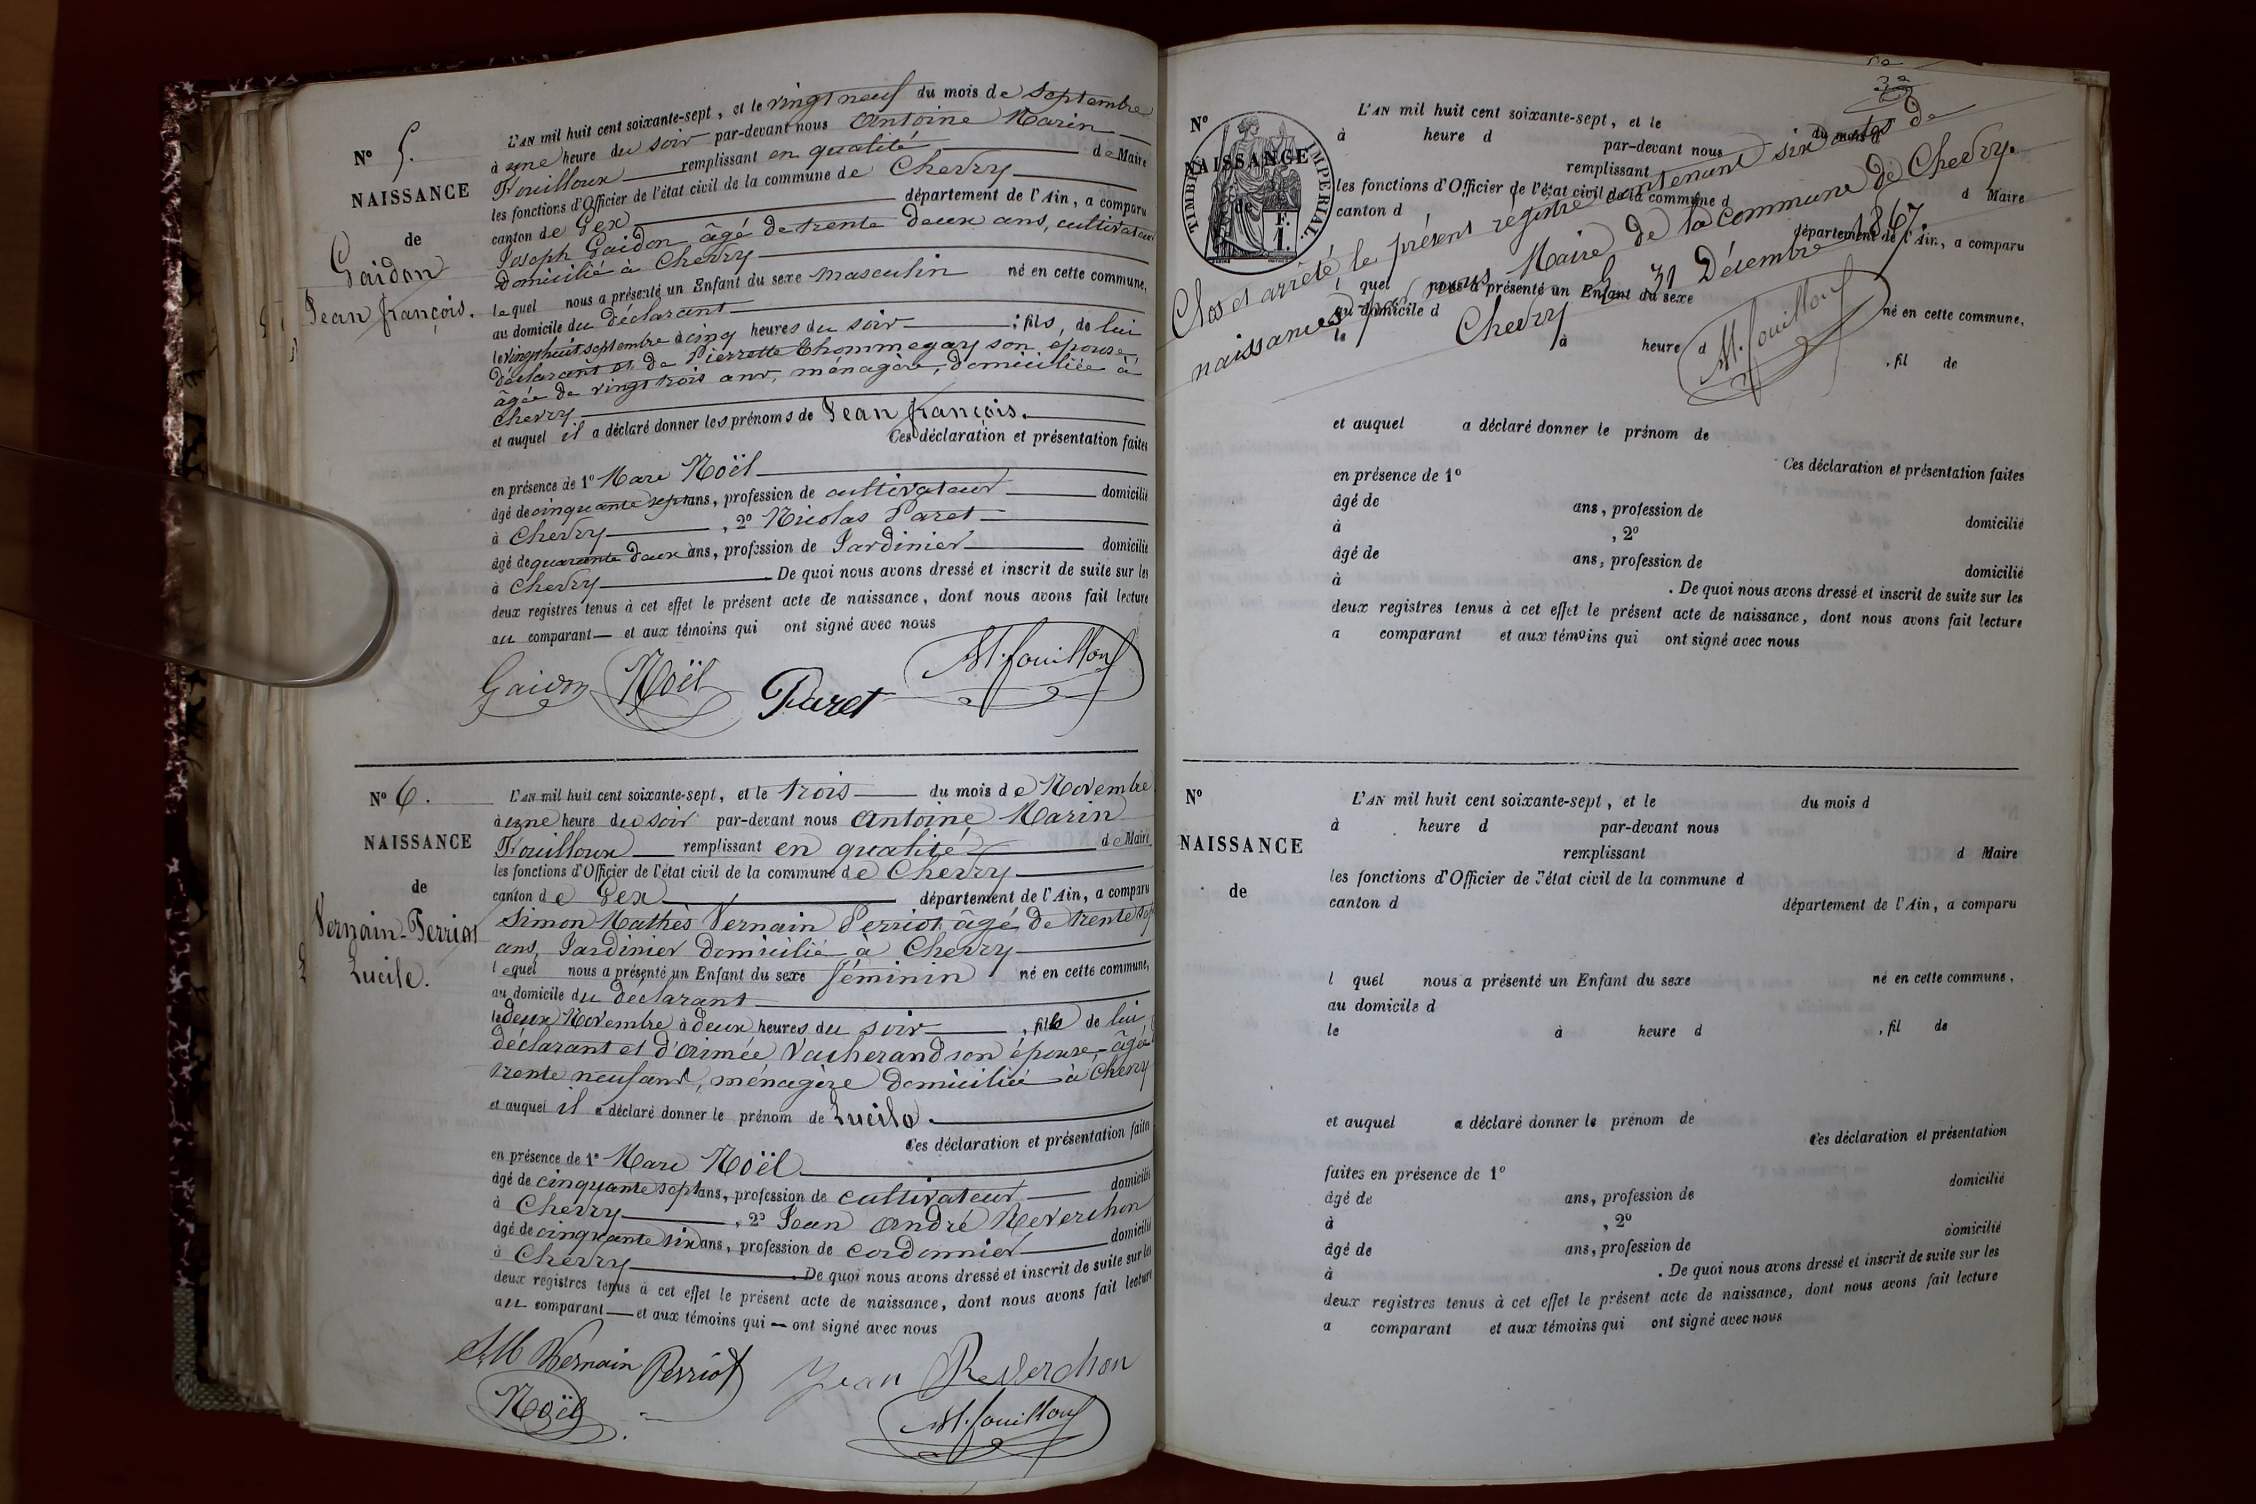 Nº 5.
NAISSANCE
de
Gaidon
Jean françois.
L'AN mil huit cent soixante-sept, et le vingt neuf du mois de Septembre
à une heure du soir par-devant nous Antoine Marin
Fouilloux remplissant en qualité de Maire
les fonctions d'Officier de l'état civil de la commune de Chevry
canton de Gex département de l'Ain, a comparu
Joseph Gaidon âgé de trente deux ans, cultivateur
domicilié à Chevry
lequel nous a présenté un Enfant du sexe masculin né en cette commune,
au domicile du déclarant
le vingt huit septembre à cinq heures du soir ; fils, de lui
déclarant et de Pierrette Chommegay son épouse,
âgée de vingt trois ans, ménagère, domiciliée à
Chevry
et auquel il a déclaré donner les prénoms de Jean françois.
Ces déclaration et présentation faites
en présence de 1º Marc Noël
âgé de cinquante sept ans, profession de cultivateur domicilié
à Chevry, 2º Nicolas Paret
âgé de quarante deux ans, profession de Jardinier domicilié
à Chevry. De quoi nous avons dressé et inscrit de suite sur les
deux registres tenus à cet effet le présent acte de naissance, dont nous avons fait lecture
au comparant et aux témoins qui ont signé avec nous
Gaidon Noël Paret M. fouilloux
Nº 6.
NAISSANCE
de
Vernain-Perriot
Lucile.
L'AN mil huit cent soixante-sept, et le trois du mois de Novembre
à une heure du soir par-devant nous Antoine Marin
Fouilloux remplissant en qualité de Maire
les fonctions d'Officier de l'état civil de la commune de Chevry
canton de Gex département de l'Ain, a comparu
Simon Mathès Vernain Perriot âgé de trente sept
ans, Jardinier domicilié à Chevry
lequel nous a présenté un Enfant du sexe féminin né en cette commune,
au domicile du déclarant
le deux Novembre à deux heures du soir, fille de lui
déclarant et d'Aimée Vacherand son épouse, âgée
trente neuf ans, ménagère domiciliée à Chevry
et auquel il a déclaré donner le prénom de Lucile.
Ces déclaration et présentation faites
en présence de 1º Marc Noël
âgé de cinquante sept ans, profession de cultivateur domicilié
à Chevry, 2º Jean André Reverchon
âgé de cinquante six ans, profession de cordonnier domicilié
à Chevry. De quoi nous avons dressé et inscrit de suite sur les
deux registres tenus à cet effet le présent acte de naissance, dont nous avons fait lecture
au comparant et aux témoins qui ont signé avec nous
SM Vernain Perriot Jean Reverchon
Noël M. fouilloux
Nº
NAISSANCE
de
TIMBRE IMPERIAL
F.
1.
L'AN mil huit cent soixante-sept, et le du mois d
à heure d par-devant nous
remplissant d Maire
les fonctions d'Officier de l'état civil de la commune d
canton d département de l'Ain, a comparu
Clos et arrêté le présent registre contenant six actes de
naissances par nous Maire de la commune de Chevry.
Chevry le 31 Décembre 1867.
M. fouilloux
l quel nous a présenté un Enfant du sexe né en cette commune,
au domicile d
le à heure d , fil de
et auquel a déclaré donner le prénom de
Ces déclaration et présentation faites
en présence de 1º
âgé de ans, profession de domicilié
à , 2º
âgé de ans, profession de domicilié
à . De quoi nous avons dressé et inscrit de suite sur les
deux registres tenus à cet effet le présent acte de naissance, dont nous avons fait lecture
a comparant et aux témoins qui ont signé avec nous
Nº
NAISSANCE
de
L'AN mil huit cent soixante-sept, et le du mois d
à heure d par-devant nous
remplissant d Maire
les fonctions d'Officier de l'état civil de la commune d
canton d département de l'Ain, a comparu
l quel nous a présenté un Enfant du sexe né en cette commune,
au domicile d
le à heure d , fil de
et auquel a déclaré donner le prénom de
Ces déclaration et présentation
faites en présence de 1º
âgé de ans, profession de domicilié
à , 2º
âgé de ans, profession de domicilié
à . De quoi nous avons dressé et inscrit de suite sur les
deux registres tenus à cet effet le présent acte de naissance, dont nous avons fait lecture
a comparant et aux témoins qui ont signé avec nous